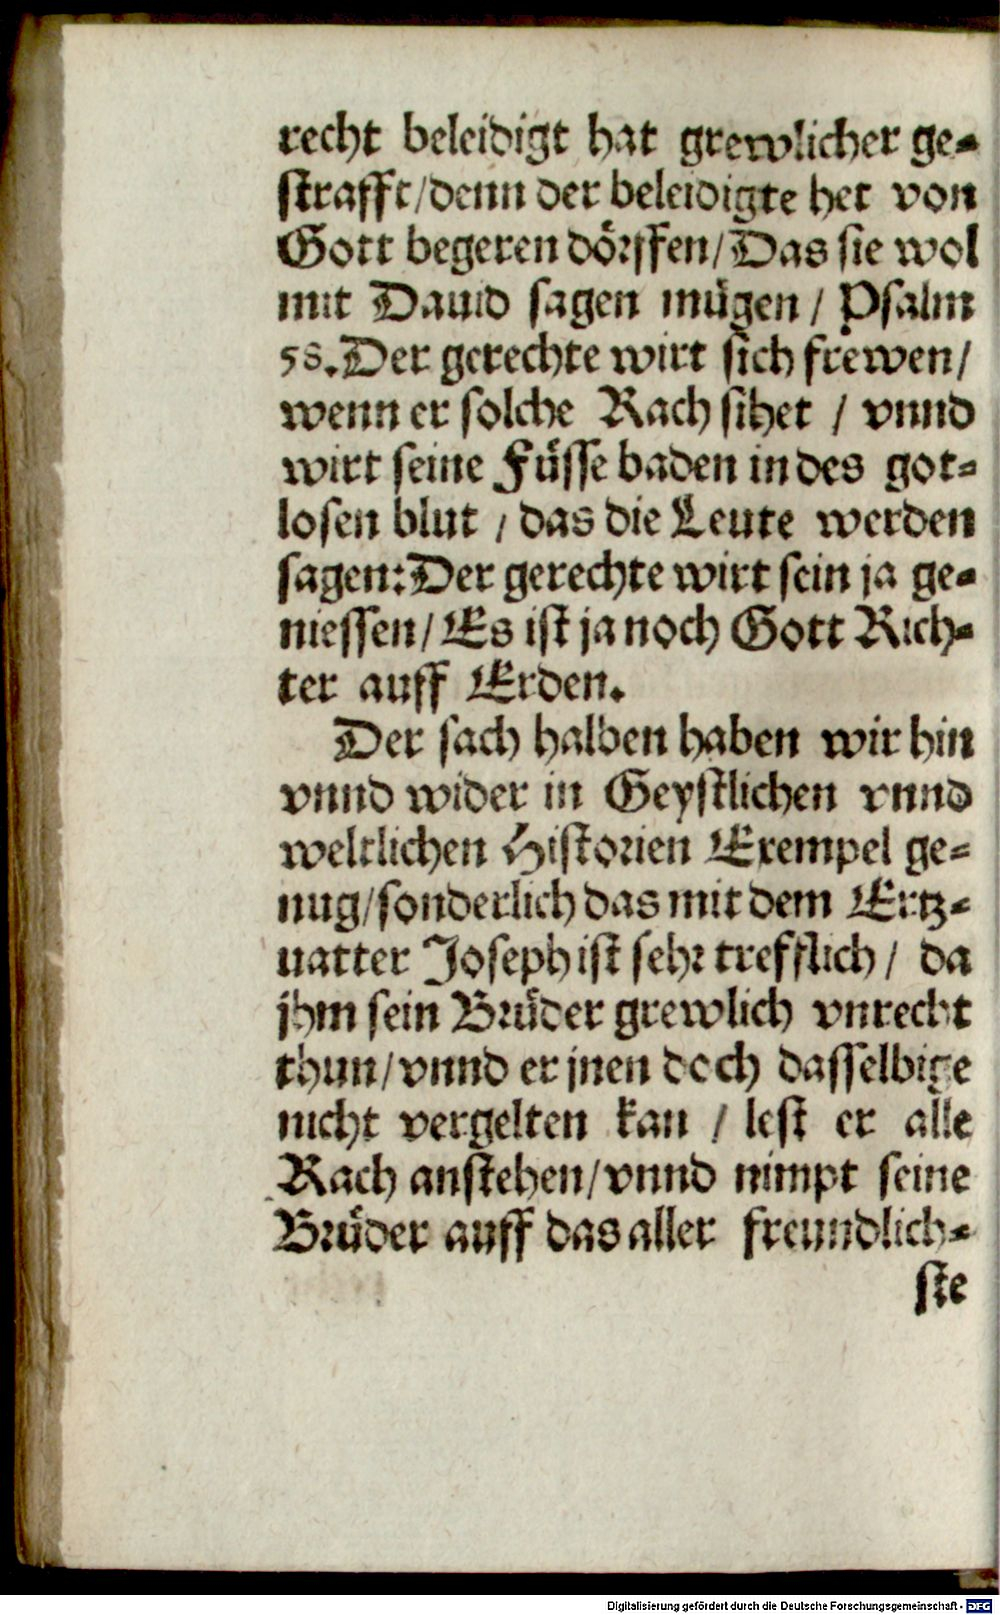 recht beleidigt hat grewlicher ge-
strafft/denn der beleidigte het von
Gott begeren dörffen/Das sie wol
mit Dauid sagen mügen / Psalm
58.Der gerechte wirt sich frewen/
wenn er solche Rach sihet / vnnd
wirt seine Füsse baden in des got-
losen blut / das die Leute werden
sagen:Der gerechte wirt sein ja ge-
niessen/Es ist ja noch Gott Rich-
ter auff Erden.
Der sach halben haben wir hin
vnnd wider in Geystlichen vnnd
weltlichen Historien Exempel ge-
nug/sonderlich das mit dem Ertz-
uatter Joseph ist sehr trefflich / da
jhm sein Brüder grewlich vnrecht
thun/vnnd er jnen doch dasselbige
nicht vergelten kan / lest er alle
Rach anstehen/vnnd nimpt seine
Brüder auff das aller freundlich-
ste
Digitalisierung gefördert durch die Deutsche Forschungsgemeinschaft - DFG